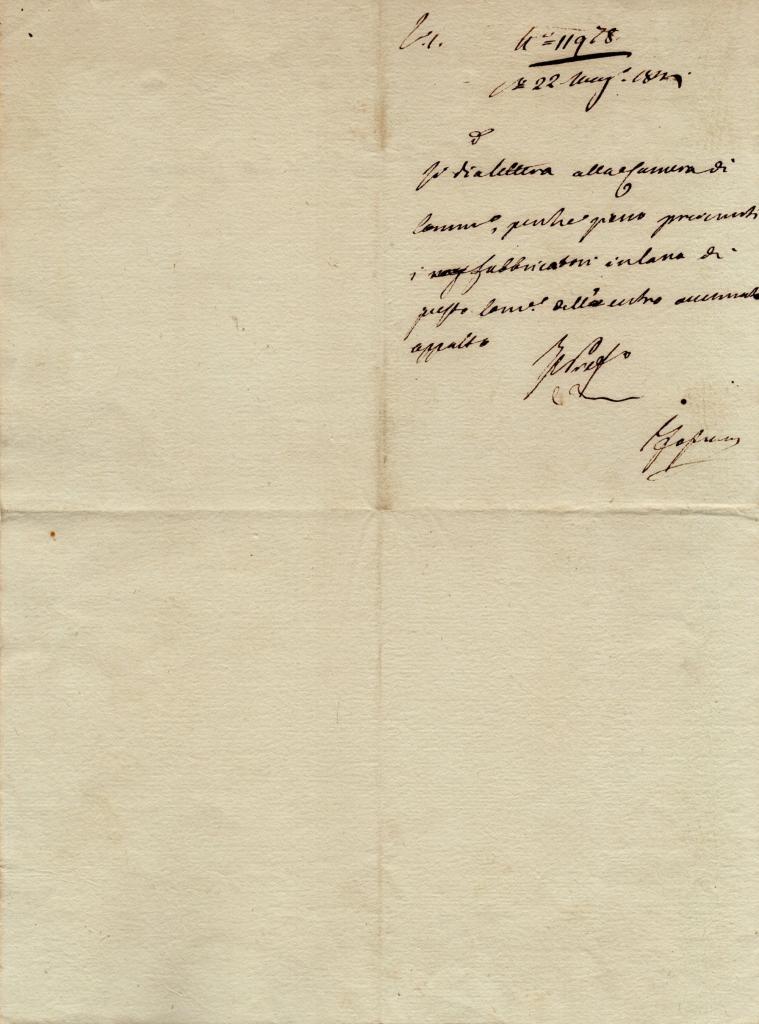 N.° 11978
22 Mag.°
Si dia lettera alla Camera di
Comm.°, perche siano prevenuti
i fabbricatori in lana di
questo Com.e dell' entro accennato
appalto
Il Pref.o